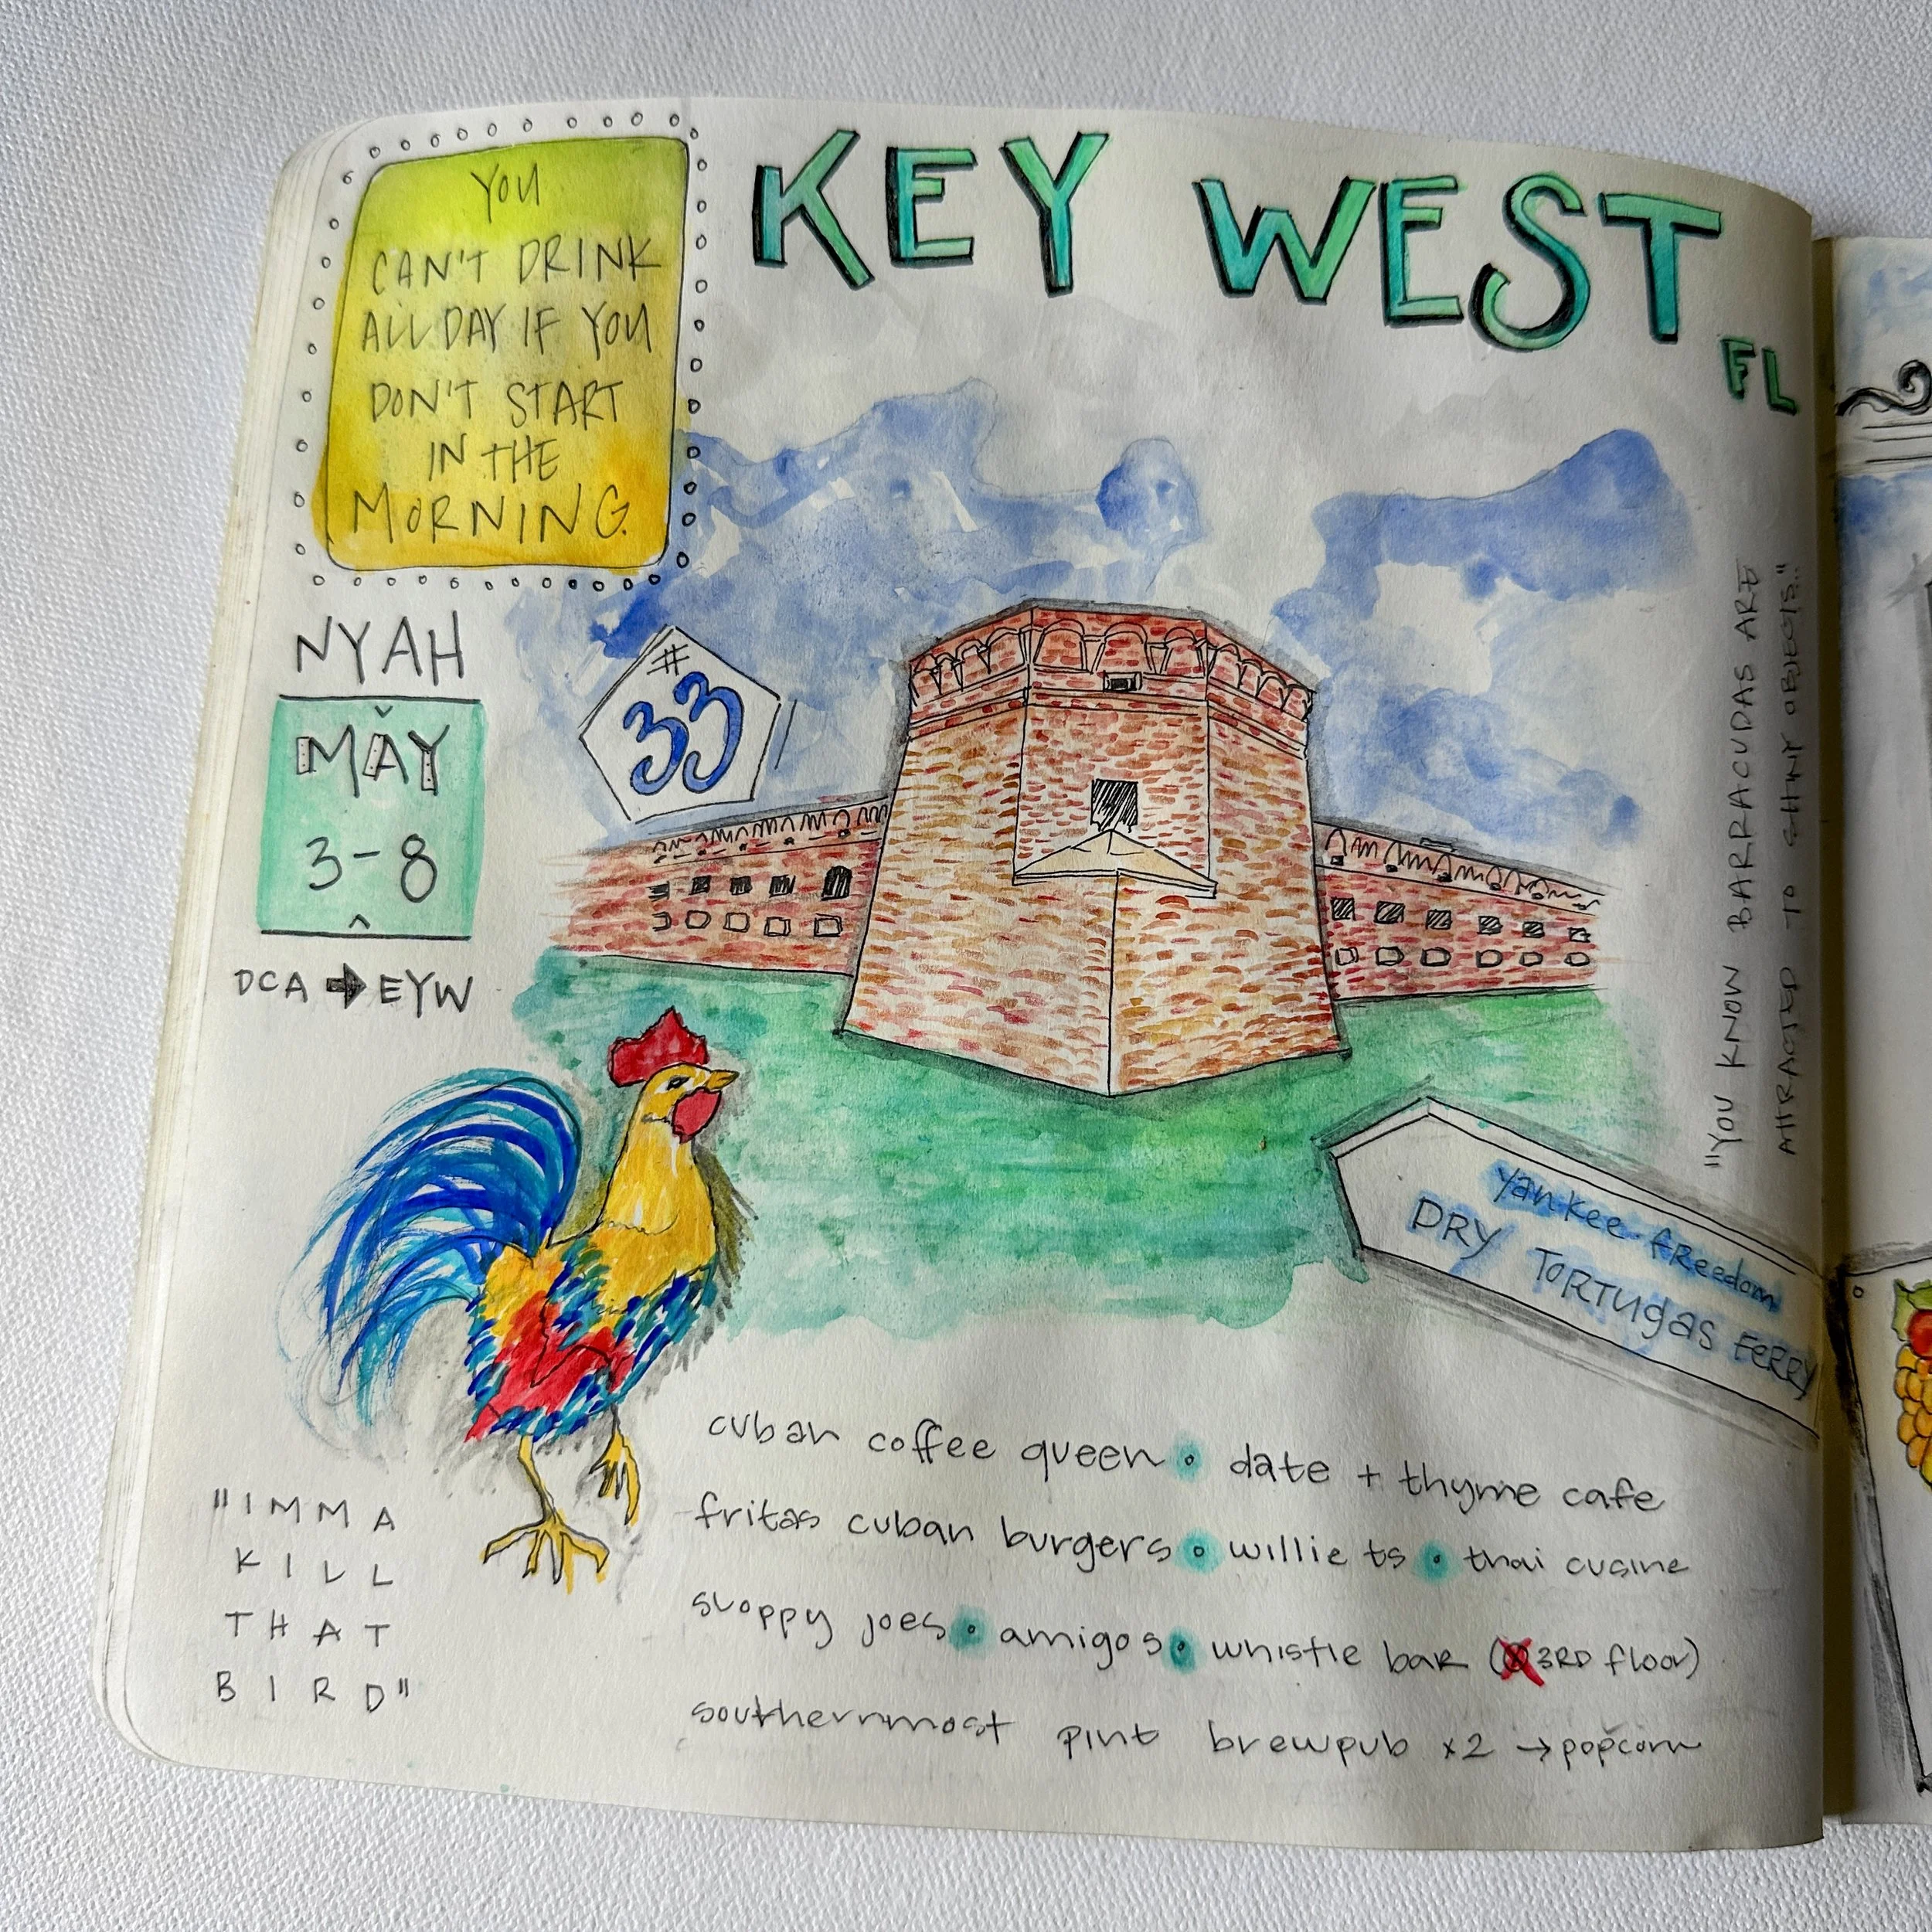 YOU
CAN'T DRINK
ALL DAY IF YOU
DON'T START
IN THE
MORNING.
KEY WEST
FL
NYAH
MAY
3-8
DCA → EYW
#
33
"YOU KNOW BARRACUDAS ARE
ATTRACTED TO SHINY OBJECTS."
yankee freedom
DRY TORTUGAS FERRY
"IMMA
KILL
THAT
BIRD"
cuban coffee queen • date + thyme cafe
fritas cuban burgers • willie ts • thai cusine
sloppy joes • amigos • whistle bar (3RD floor)
southernmost pint brewpub x2 → popcorn